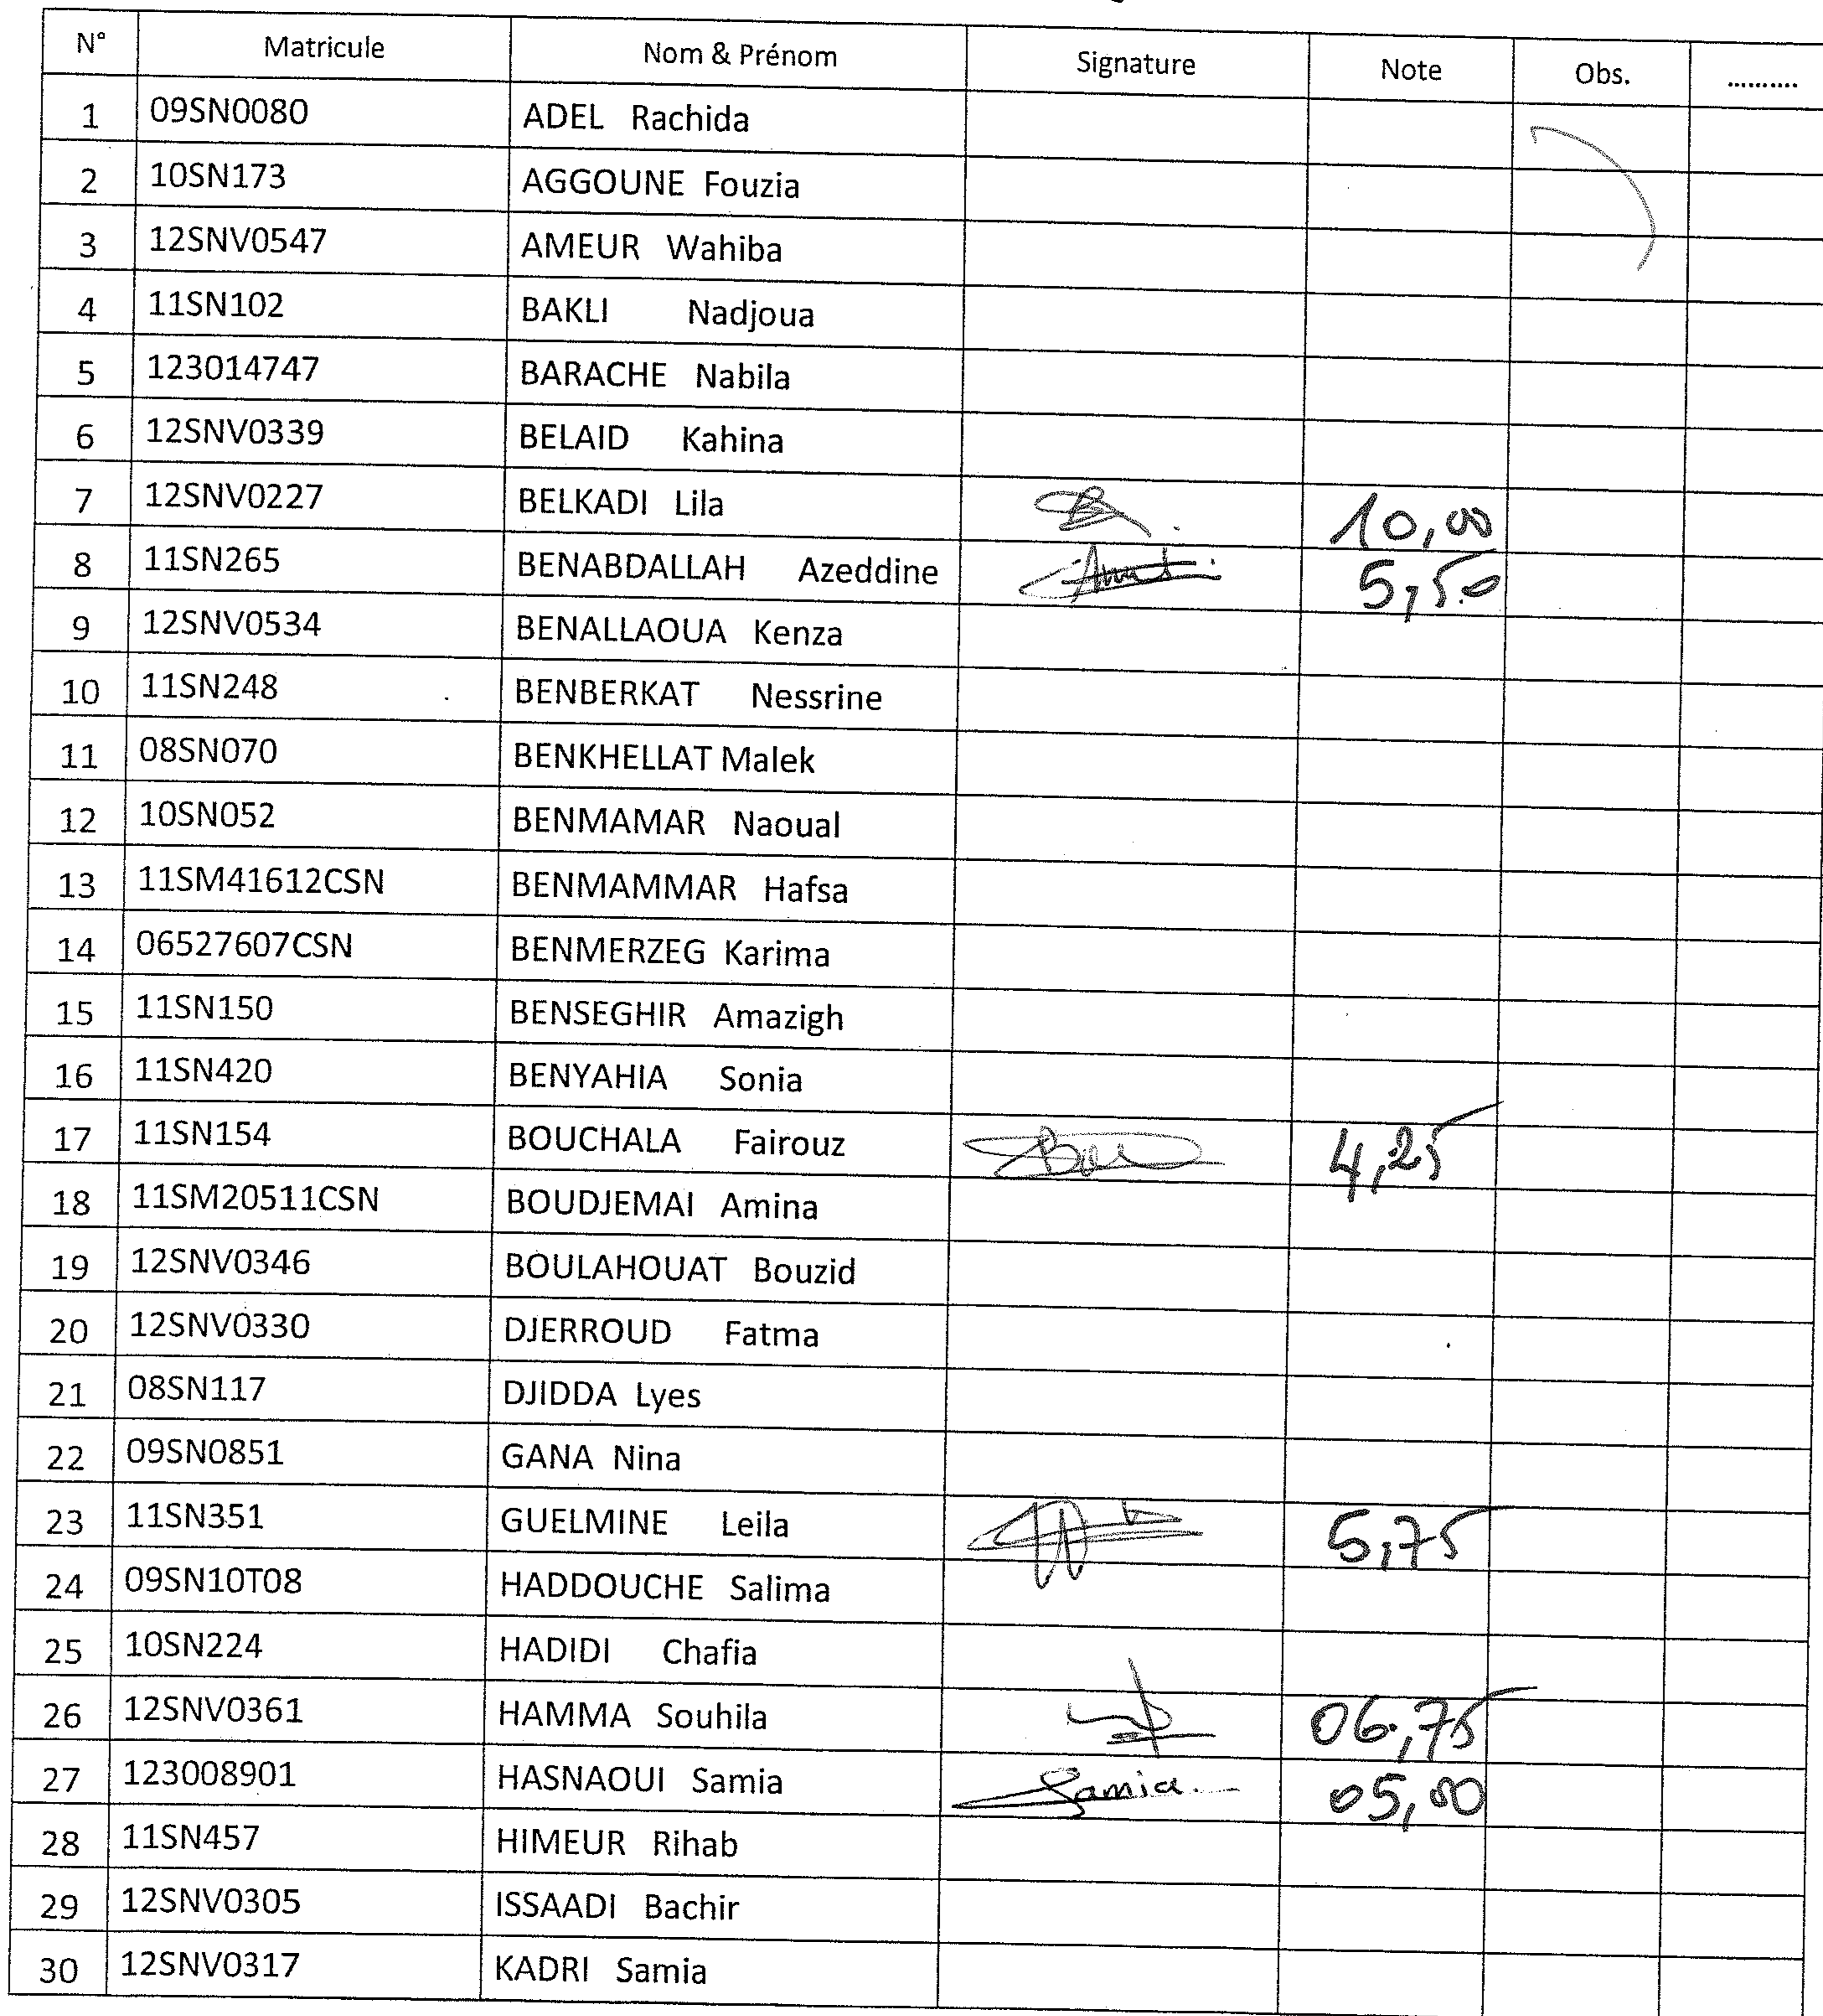 N° Matricule Nom & Prénom Signature Note Obs. ..........
1 09SN0080 ADEL Rachida
2 10SN173 AGGOUNE Fouzia
3 12SNV0547 AMEUR Wahiba
4 11SN102 BAKLI Nadjoua
5 123014747 BARACHE Nabila
6 12SNV0339 BELAID Kahina
7 12SNV0227 BELKADI Lila 10,00
8 11SN265 BENABDALLAH Azeddine 5,50
9 12SNV0534 BENALLAOUA Kenza
10 11SN248 BENBERKAT Nessrine
11 08SN070 BENKHELLAT Malek
12 10SN052 BENMAMAR Naoual
13 11SM41612CSN BENMAMMAR Hafsa
14 06527607CSN BENMERZEG Karima
15 11SN150 BENSEGHIR Amazigh
16 11SN420 BENYAHIA Sonia
17 11SN154 BOUCHALA Fairouz 4,25
18 11SM20511CSN BOUDJEMAI Amina
19 12SNV0346 BOULAHOUAT Bouzid
20 12SNV0330 DJERROUD Fatma
21 08SN117 DJIDDA Lyes
22 09SN0851 GANA Nina
23 11SN351 GUELMINE Leila 5,75
24 09SN10T08 HADDOUCHE Salima
25 10SN224 HADIDI Chafia
26 12SNV0361 HAMMA Souhila 06,75
27 123008901 HASNAOUI Samia Samia 05,00
28 11SN457 HIMEUR Rihab
29 12SNV0305 ISSAADI Bachir
30 12SNV0317 KADRI Samia